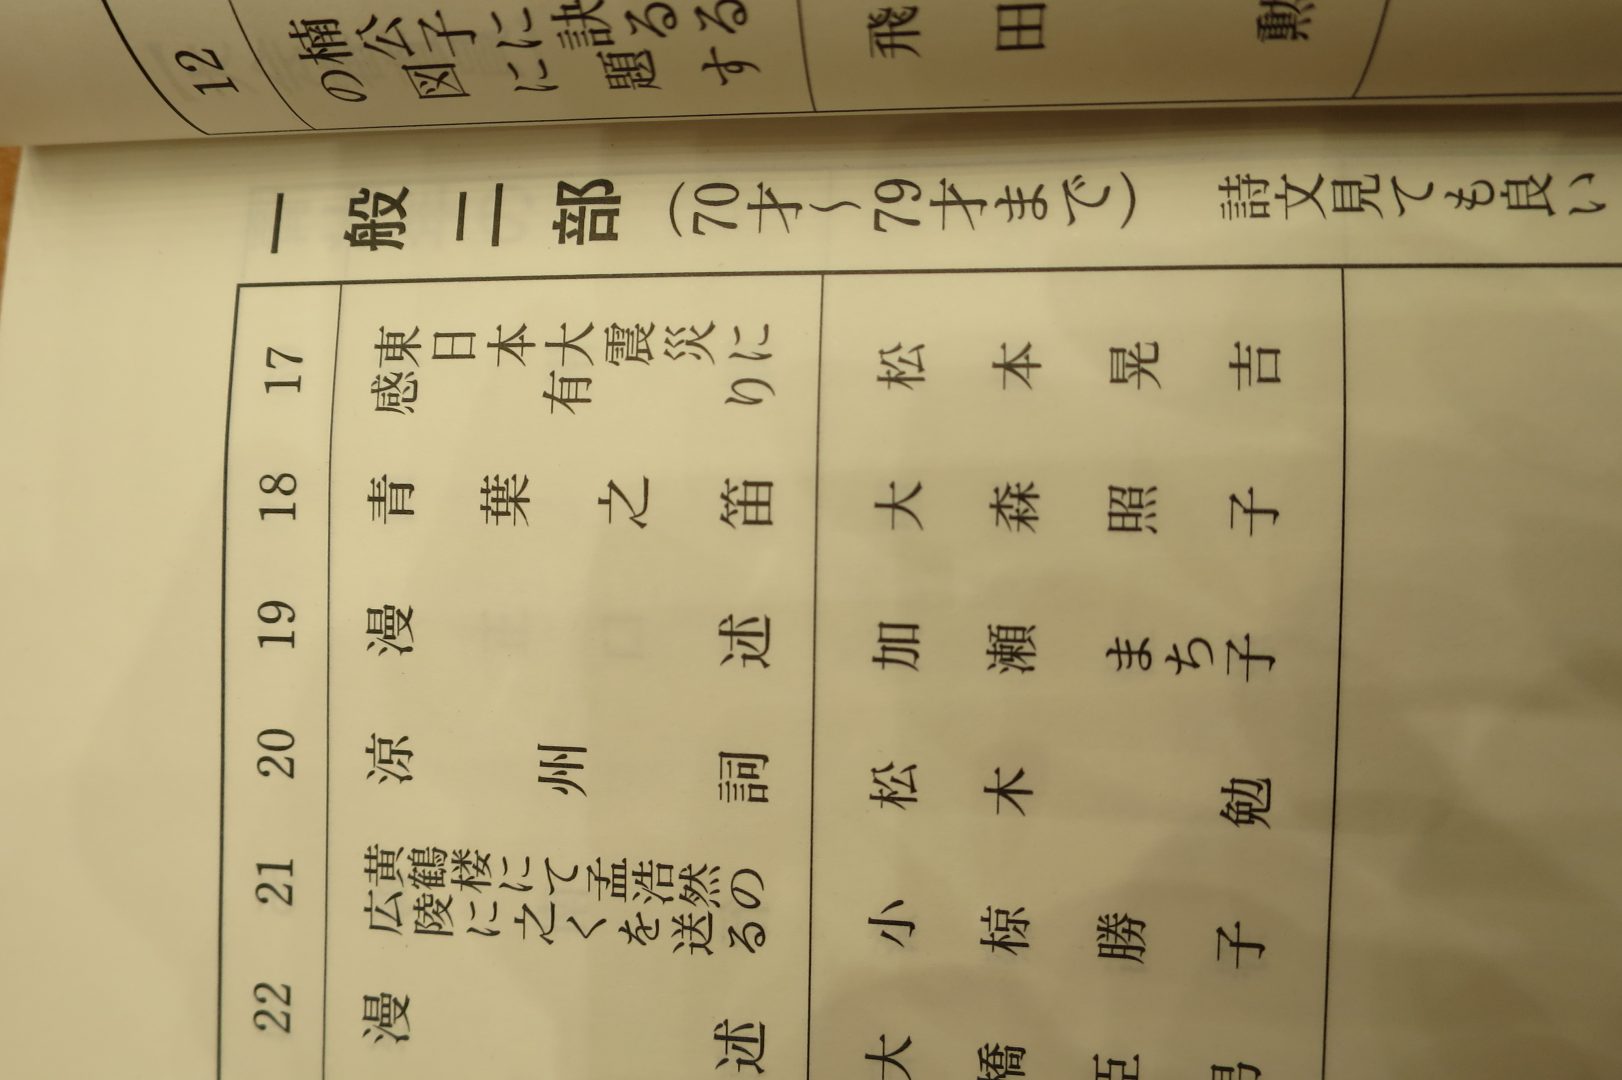 12
楠公子に訣るる
の図に題す
飛田勲
一般二部（70才～79才まで） 詩文見ても良い
17
東日本大震災に
感有り
松本晃吉
18
青葉之笛
大森照子
19
漫述
加瀬まち子
20
涼州詞
松木勉
21
黄鶴楼にて孟浩然の
広陵に之くを送る
小椋勝子
22
漫述
大橋臣男